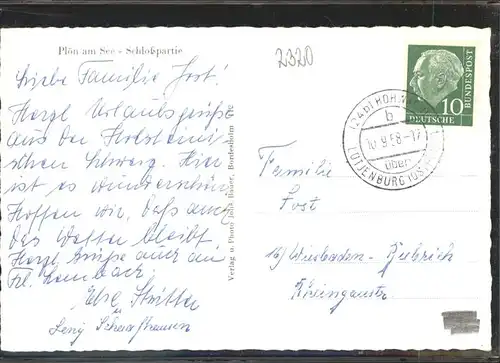 Plön am See - Schloßpartie
2320
Liebe Familie Jost!
Herzl. Urlaubsgrüße
aus der Holsteini-
schen Schweiz. Hier
ist es wunderschön
Hoffen wir, daß auch
das Wetter bleibt.
Herzl. Grüße auch an
Frl. Lombard
Else
u.
Leny Schaafhausen
Verlag u. Photo Julius Bauer, Bordesholm
10
DEUTSCHE
BUNDESPOST
(24b)
b
10.9.58-17
über
LÜTJENBURG
Familie
Jost
16) Wiesbaden-Biebrich
Rheingaustr.